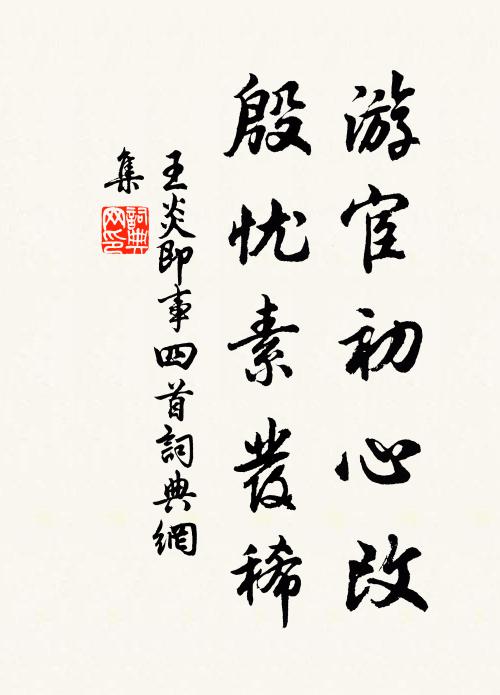 游宦初心改
殷忧素发稀
王炎即事四首詞典網
集
詞典网印